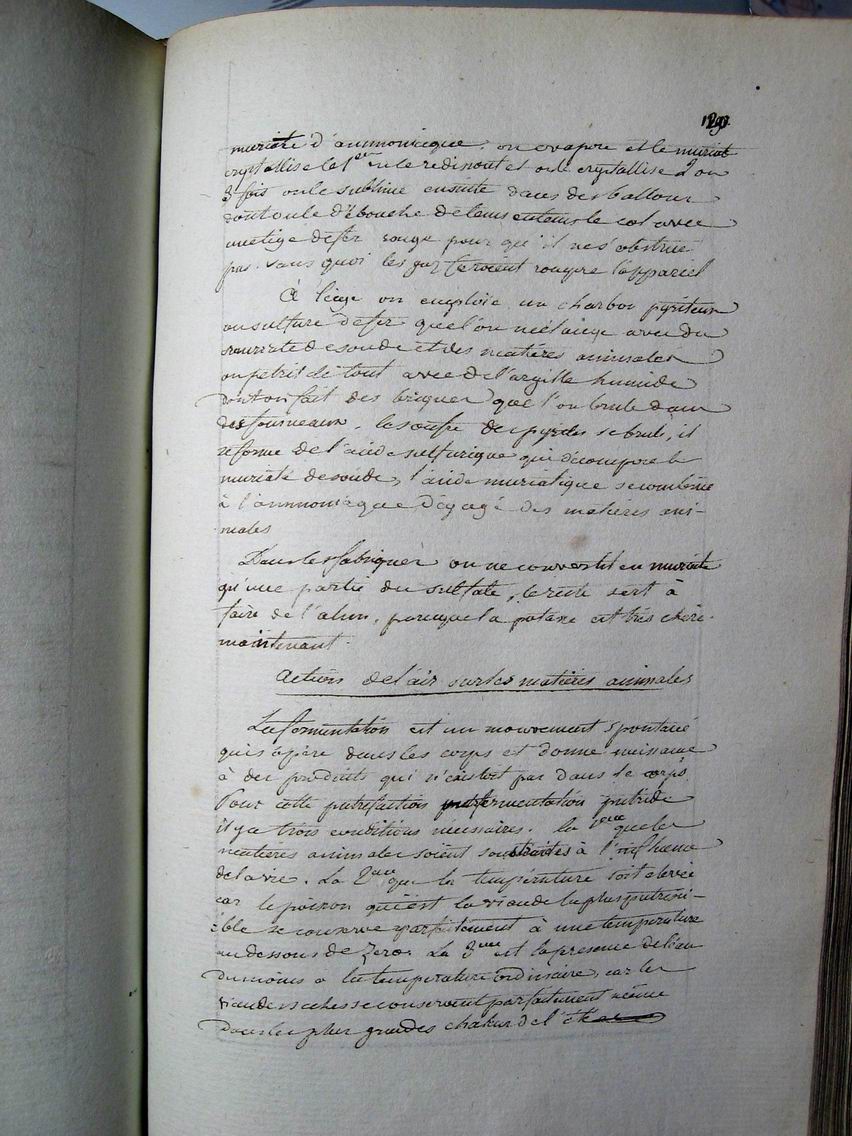 muriate d'ammoniaque. on evapore et le muriat
crystallise la 1ere on le redissout et on le crystallise 2 ou
3 fois on le sublime ensuite dans des ballons
dont on le débouche de tems entems le col avec
une tige de fer rouge pour qu'il ne s'obstrue
pas. sans quoi les gaz feroient rompre l'appareil
À liège on emploie un charbon pyriteux
ou sulfure de fer que l'on mélange avec du
muriate de soude et des matières animales
on petrit le tout avec de l'argille humide
dont on fait des briques que l'on brule dans
des fourneaux. le soufre des pyrites se brule, il
se forme de l'acide sulfurique qui décompose le
muriate de soude, l'acide muriatique se combine
à l'ammoniaque dégagé des matières ani-
males
Dans les fabriques on ne convertit en muriate
qu'une partie du sulfate, le reste sert à
faire de l'alun, parceque la potasse est très chère
maintenant.
Actions de l'air sur les matières animales
La fermentation est un mouvement spontané
qui s'opère dans les corps et donne naissance
à des produits qui n'existoit pas dans le corps.
Pour cette putrefaction fermentation putride
il y a trois conditions nécessaires. la 1ere que les
matières animales soient soustraites à l'influence
de la vie. La 2eme que la température soit elevée
car le poisson qui est la viande la plus putresci-
ble se conserve parfaitement à une temperature
au dessous de Zero. La 3eme est la presence de l'eau
du moins à la temperature ordinaire, car les
viandes seches se conservent parfaitement même
dans les plus grandes chaleurs de l'été